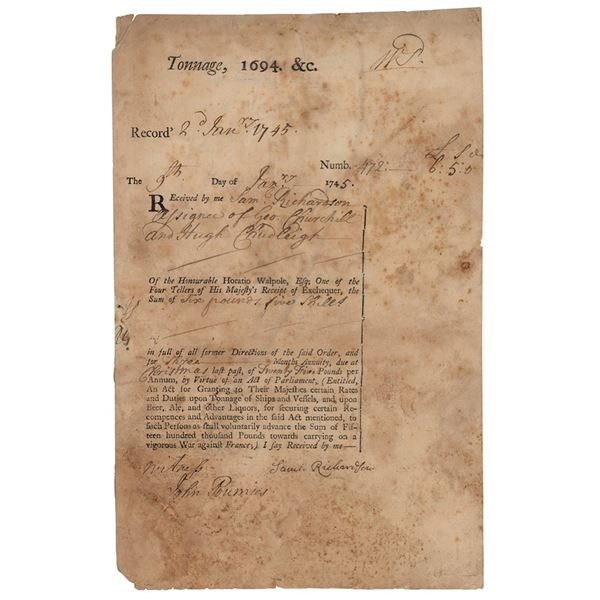 Tonnage, 1694. &c.
Record' 2d Janry. 1745.
Numb. 472: £ s d
6: 5: 0
The 9th. Day of Janry 1745.
Received by me Sam. Richardson
Assignee of Geo: Churchill
and Hugh Chudleigh
Of the Honourable Horatio Walpole, Esq; One of the
Four Tellers of His Majesty's Receipt of Exchequer, the
Sum of Six pounds five Shills
in full of all former Directions of the said Order, and
for Three Months Annuity, due at
Christmas last past, of Twenty Five Pounds per
Annum, by Virtue of an Act of Parliament, (Entitled,
An Act for Granting to Their Majesties certain Rates
and Duties upon Tonnage of Ships and Vessels, and upon
Beer, Ale, and other Liquors, for securing certain Re-
compences and Advantages in the said Act mentioned, to
such Persons as shall voluntarily advance the Sum of Fif-
teen hundred thousand Pounds towards carrying on a
vigorous War against France;) I say Received by me—
Witness Saml. Richardson
John